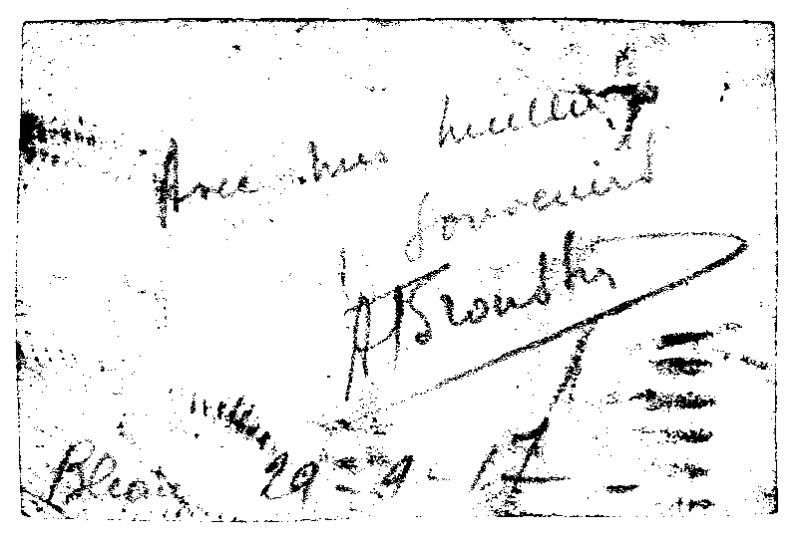 Avec mes meilleurs
souvenirs
ABroustin
Blain 29-9-17